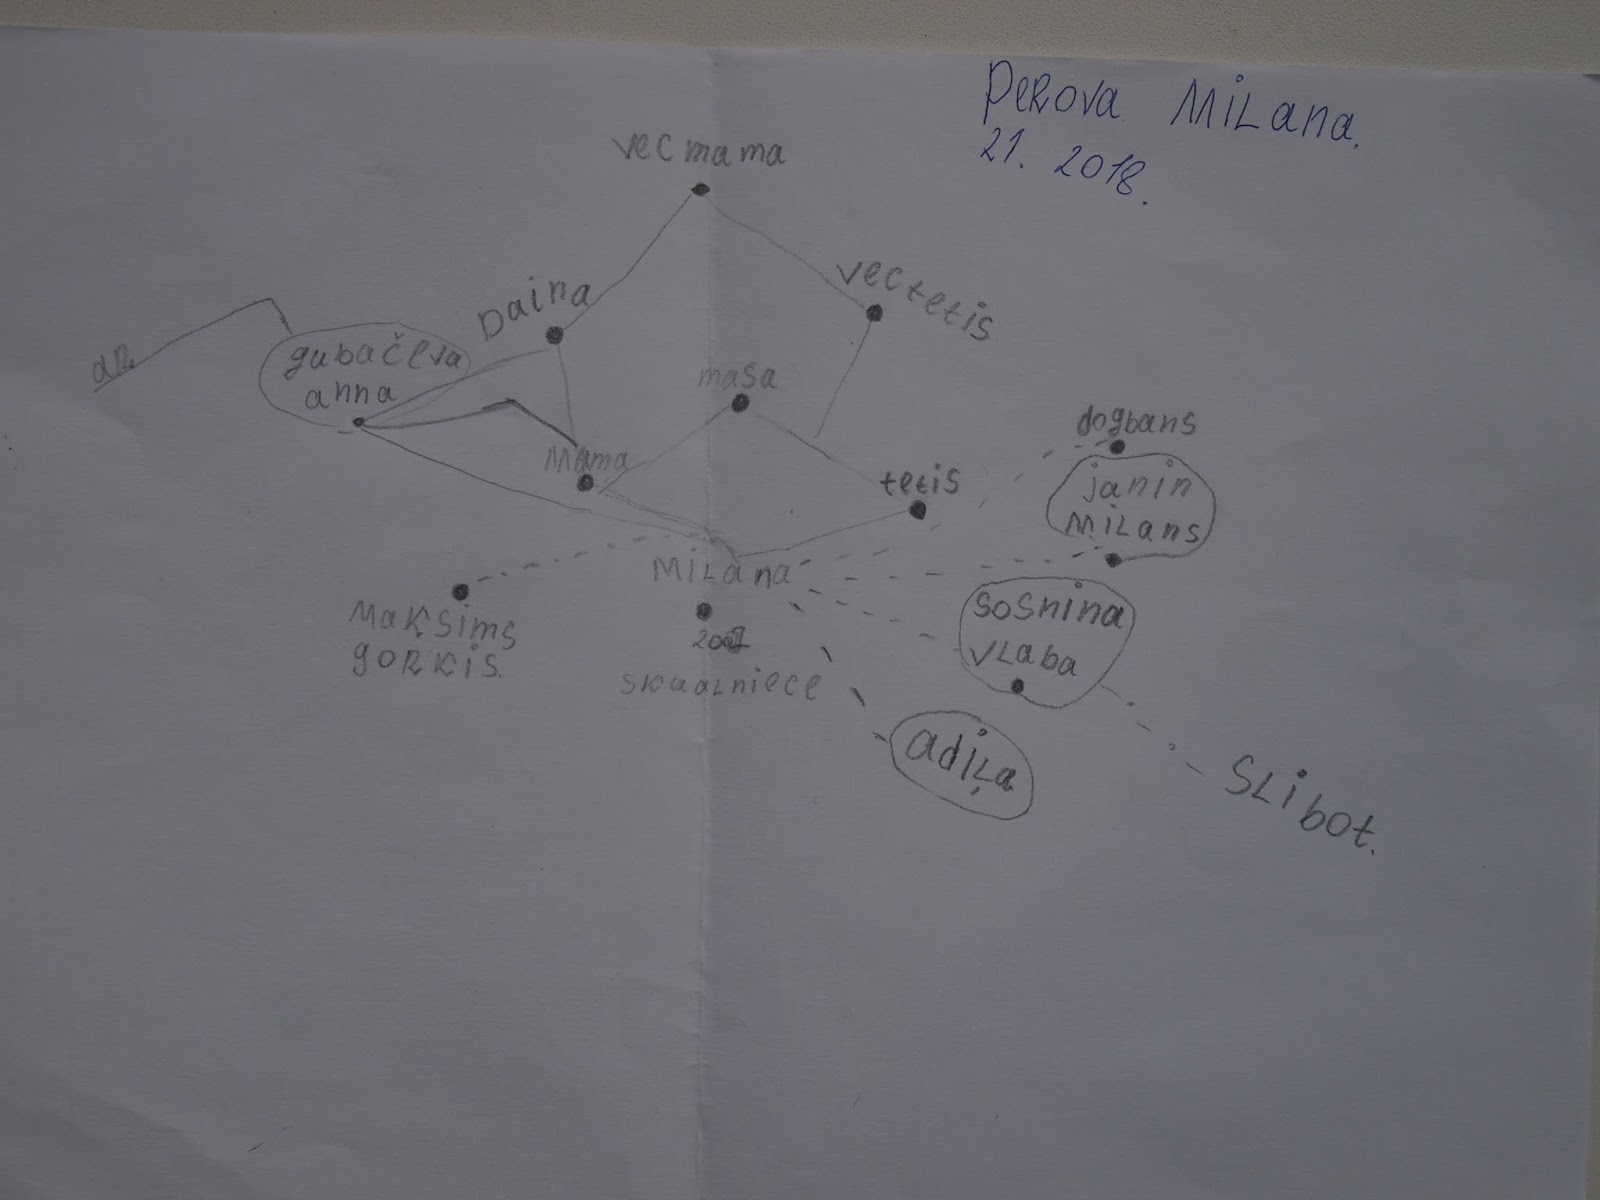 Perova Milana.
21. 2018.
vecmama
Daina
vectetis
gubačeva
anna
masa
mama
tetis
dogbans
janin
milans
Milana
sosnina
vlaba
Maksims
gorkis.
skualniece
adiļa
slibot.